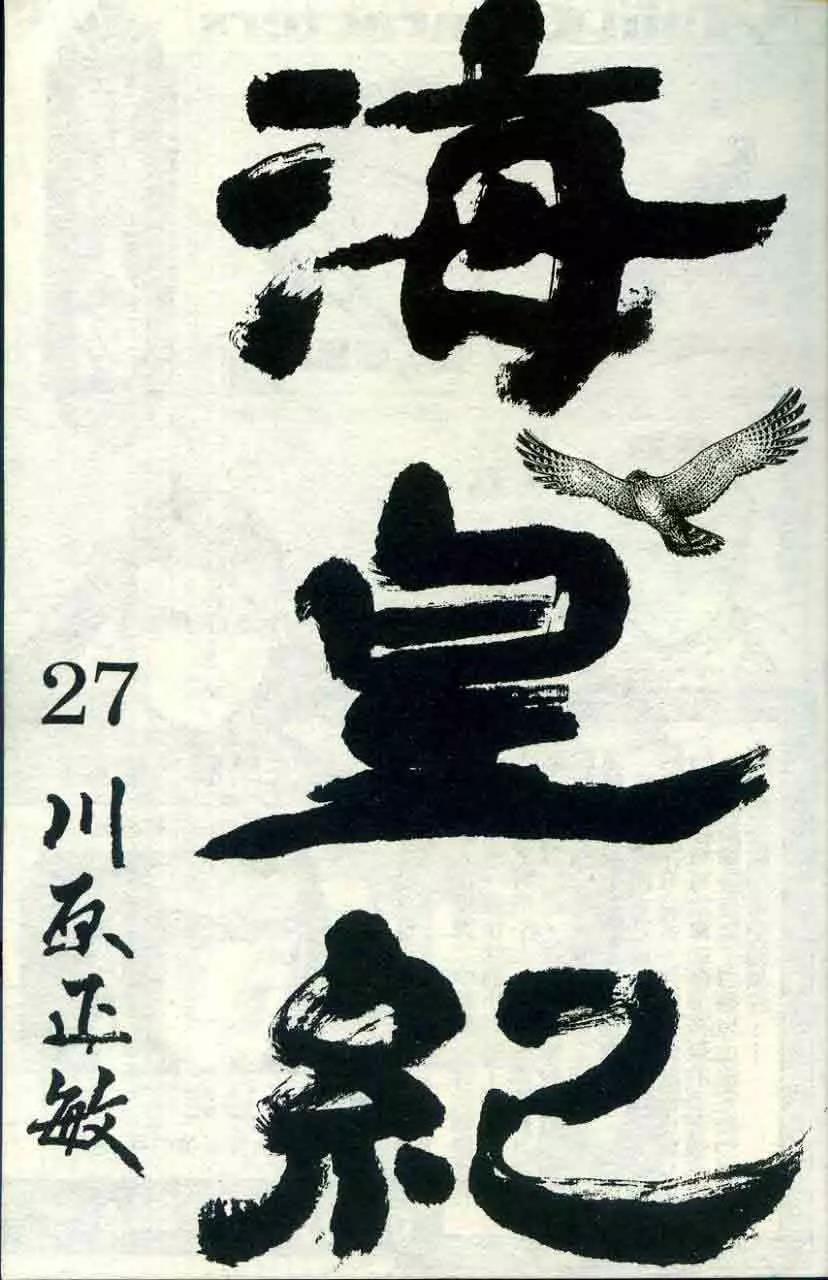 海皇紀
27
川原正敏